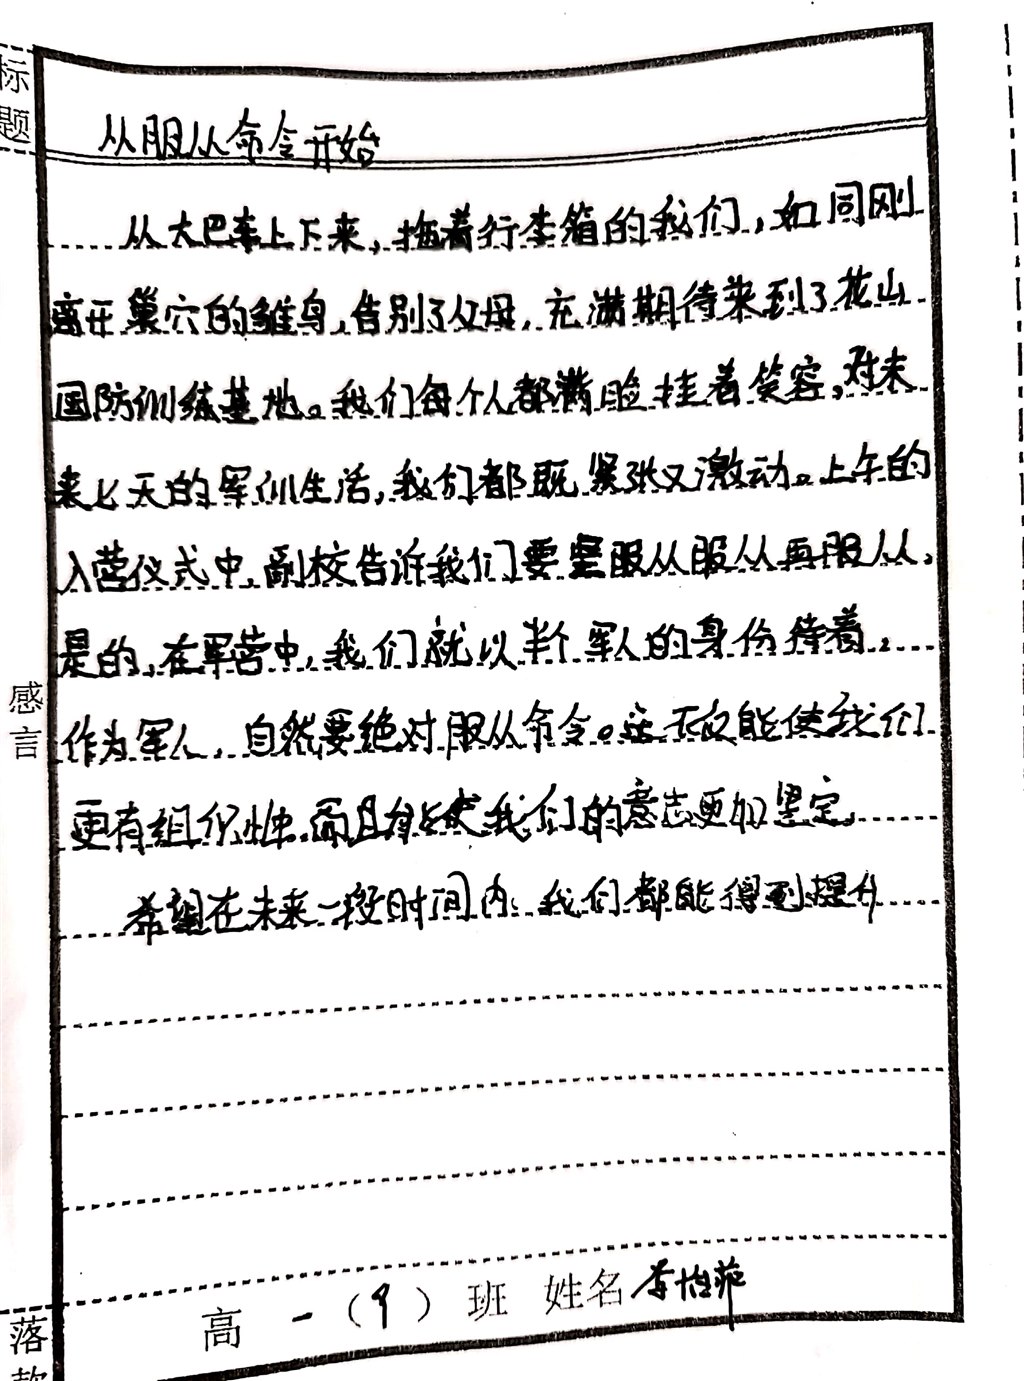 标题
从服从命令开始
从大巴车上下来，拖着行李箱的我们，如同刚
离开巢穴的雏鸟，告别了父母，充满期待来到了花山
国防训练基地。我们每个人都满脸挂着笑容，对未
来七天的军训生活，我们都既紧张又激动。上午的
入营仪式中，副校告诉我们要服从服从再服从，
是的，在军营中，我们就以半个军人的身份待着，
感言
作为军人，自然要绝对服从命令。这不仅能使我们
更有组织性，而且能使我们的意志更加坚定。
希望在未来一段时间内，我们都能得到提升
高一（9）班 姓名 李怡茹
落款